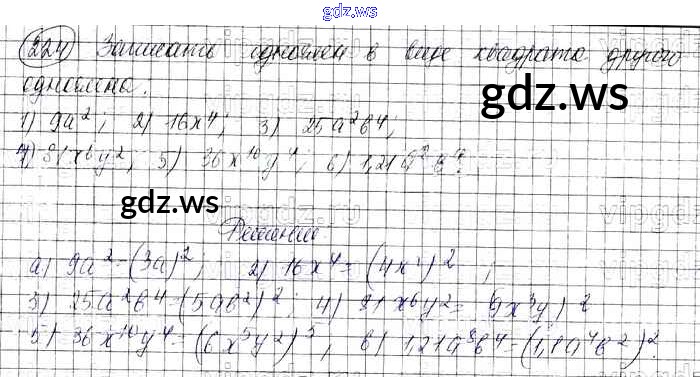 gdz.ws
224 Записать одночлен в виде квадрата другого
одночлена.
gdz.ws
1) 9a²; 2) 16x⁴; 3) 25a²b⁴;
4) 81x⁶y²; 5) 36x¹⁰y⁴; 6) 1,21a⁸b⁴.
gdz.ws
Решение:
1) 9a²=(3a)²; 2) 16x⁴=(4x²)²;
3) 25a²b⁴=(5ab²)²; 4) 81x⁶y²=(9x³y)²
5) 36x¹⁰y⁴=(6x⁵y²)²; 6) 1,21a⁸b⁴=(1,1a⁴b²)².